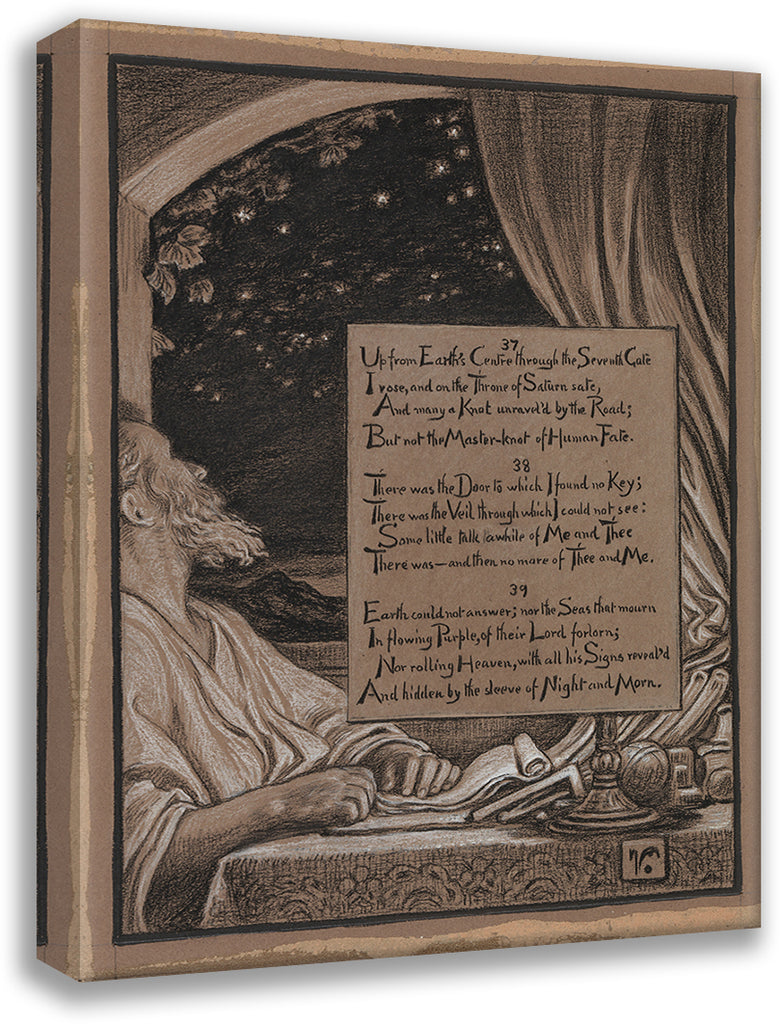 37
Up from Earth's Centre through the Seventh Gate
I rose, and on the Throne of Saturn sate,
And many a Knot unravel'd by the Road;
But not the Master-knot of Human Fate.
38
There was the Door to which I found no Key;
There was the Veil through which I could not see:
Some little talk awhile of Me and Thee
There was—and then no more of Thee and Me.
39
Earth could not answer; nor the Seas that mourn
In flowing Purple, of their Lord forlorn;
Nor rolling Heaven, with all his Signs reveal'd
And hidden by the sleeve of Night and Morn.
V